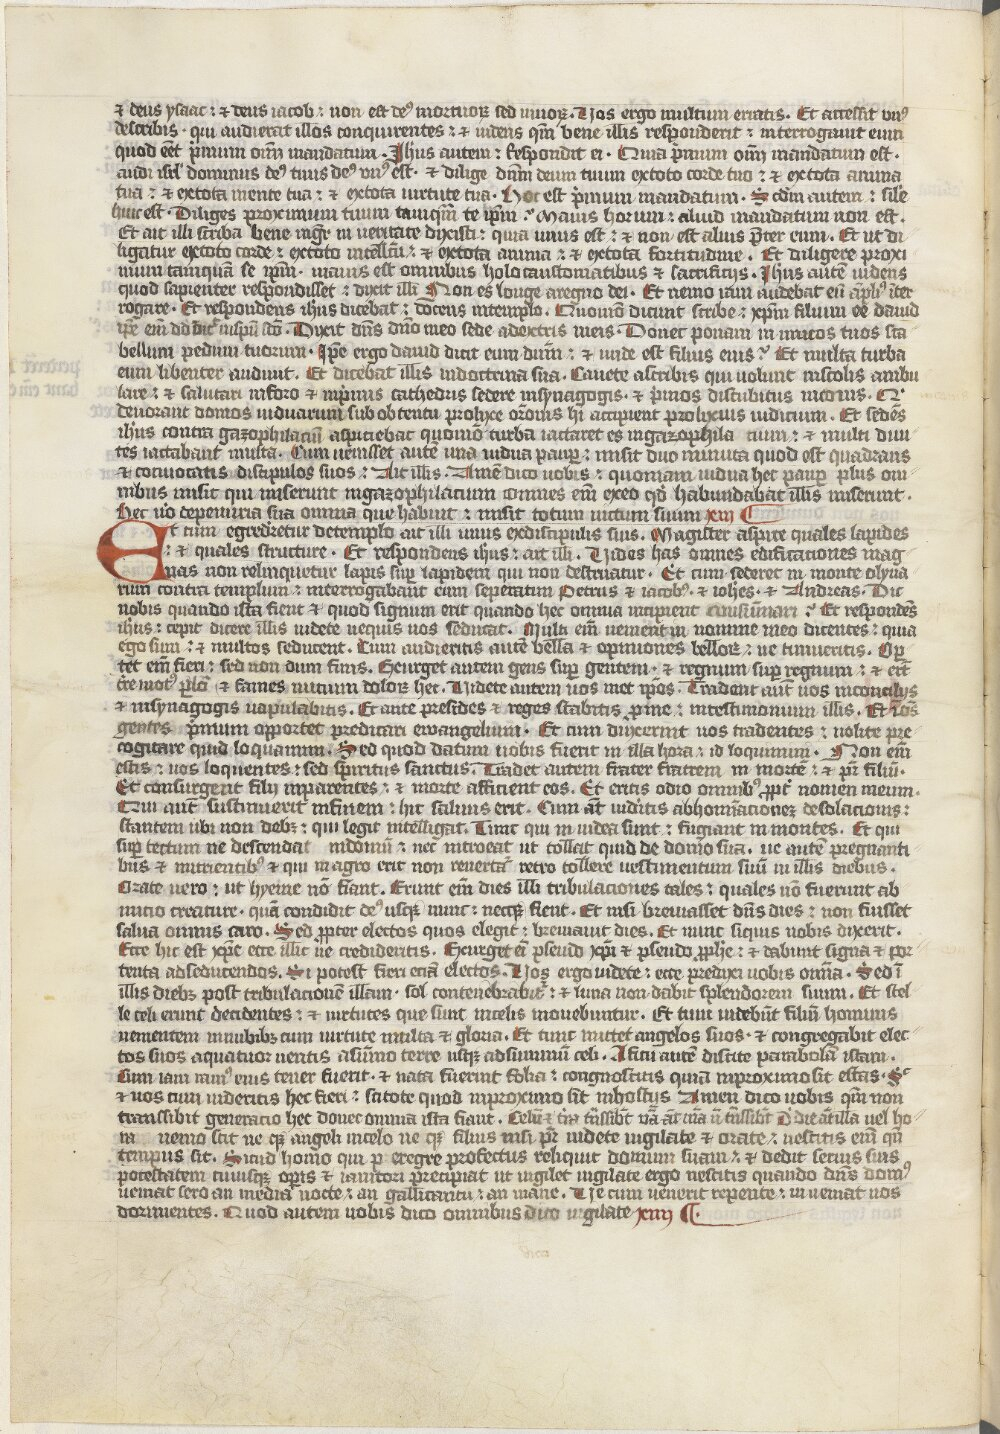 ⁊ deus ysaac : ⁊ deus iacob : non est de⁹ mortuoꝝ sed uiuoꝝ . Vos ergo multum erratis . Et accessit vn⁹
describis · qui audierat illos conquirentes : ⁊ uidens qm̄ bene illis responderit : interrogauit eum
quod eēt p̄mum oīm mandatum . Ihus autem : Respondit ei · Quia p̄mum oīm mandatum est ·
audi isrl dominus de⁹ tuus de⁹ vn⁹ est · ⁊ dilige dn̄m deum tuum extoto corde tuo : ⁊ extota anima
tua : ⁊ extota mente tua : ⁊ extota uirtute tua · Hoc est p̄mum mandatum . Scd̄m autem : sile
huic est · Diliges proximum tuum tamqm̄ te ip̄m : Maius horum : aliud mandatum non est .
Et ait illi scriba bene mgr̄ in ueritate dixisti : quia unus est : ⁊ non est alius p̄ter eum . Et ut di
ligatur extoto corde : extoto intellc̄u : ⁊ extota anima : ⁊ extota fortitudine . Et diligere proxi
mum tamquā se ip̄m · maius est omnibus holocaustomatibus ⁊ sacrificijs . Ihus autē uidens
quod sapienter respondisset : dixit illi Non es longe aregno dei . Et nemo iam audebat eū āpli⁹ iter
rogare · Et respondens ihus dicebat : docens intemplo . Quomō dicunt scribe : xpm̄ filium eē dauid
ip̄e em̄ dd dic̄ inspū sc̄o . Dixit dn̄s dn̄o meo sede adextris meis . Donec ponam inimicos tuos sca
bellum pedum tuorum · Ip̄e ergo dauid dicit eum dn̄m : ⁊ unde est filius eius ? Et multa turba
eum libenter audiuit . Et dicebat illis indoctrina sua . Cauete ascribis qui uolunt instolis ambu
lare : ⁊ salutari inforo ⁊ inp̄mis cathedris sedere insynagogis · ⁊ p̄mos discubitus incenis . Q'
deuorant domos uiduarum sub obtentu prolixe orōnis hi accipient prolixius iudicium . Et sedēs
ihus contra gazophilaciū aspiciebat quomō turba iactaret es ingazophila cium : ⁊ multi diui
tes iactabant multa . Cum uēnisset autē una uidua paup̄ : misit duo minuta quod est quadrans
⁊ conuocatis discipulos suos : Ait illis . Amē dico uobis : quoniam uidua hec paup̄ plus om
nibus misit qui miserunt ingazophilacium omnes em̄ exeo qd̄ habundabat illis miserunt .
Hec uo depenuria sua omnia que habuit : misit totum uictum suum xiij
Et cum egrederetur detemplo ait illi unus exdiscipulis suis . Magister aspice quales lapides
: ⁊ quales structure . Et respondens ihus : ait illi . Vides has omnes edificationes mag
nas non relinquetur lapis sup̄ lapidem qui non destruatur . Et cum sederet in monte olyua
rum contra templum : interrogabant eum seperatum Petrus ⁊ iacob⁹ · ⁊ ioh̄es · ⁊ Andreas . Dic
nobis quando ista fient ⁊ quod signum erit quando hec omnia incipient consūmari ? Et respondēs
ihus : cepit dicere illis uidete nequis uos seducat . Multi em̄ uenient in nomine meo dicentes : quia
ego sum : ⁊ multos seducent . Cum audieritis autē bella ⁊ opiniones belloꝝ : ne timueritis . Op̄
tet em̄ fieri : sed non dum finis . Exurget autem gens sup̄ gentem · ⁊ regnum sup̄ regnum : ⁊ er̄t
t̄re mot⁹ p̄ loc̄ ⁊ fames initium doloꝝ hec . Videte autem uos met ip̄os . Tradent aut̄ uos inconcilijs
⁊ insynagogis uapulabitis . Et ante presides ⁊ reges stabitis p̄ me : intestimonium illis . Et ī oēs
gentes p̄mum opportet predicari ewangelium . Et cum duxerint uos tradentes : nolite pre
cogitare quid loquamini . Sed quod datum uobis fuerit in illa hora : id loquimini · Non em̄
estis : uos loquentes : sed spiritus sanctus . Tradet autem frater fratrem in mortē : ⁊ pr̄ filiū ·
Et consurgent filij inparentes : ⁊ morte afficient eos . Et eritis odio omnib⁹ ꝓpt̄ nomen meum .
Qui aut̄ sustinuerit infinem : hic saluus erit . Cum āt uidr̄itis abhominacionez desolacionis :
stantem ubi non debꝫ : qui legit intelligat . Tunc qui in iudea sunt : fugiant in montes . Et qui
sup̄ tectum ne descendat indomū : nec introeat ut tollat quid de domo sua . ue autē pregnanti
bus ⁊ nutrientib⁹ ⁊ qui in agro erit non reuertat̄ retro tollere uestimentum suū in illis diebus .
Orate uero : ut hyeme nō fiant . Erunt em̄ dies illi tribulaciones tales : quales nō fuerunt ab
inicio creature · quā condidit de⁹ usqꝫ nunc : necqꝫ fient . Et nisi breuiasset dn̄s dies : non fuisset
salua omnis caro . Sed ꝓpter electos quos elegit : breuiauit dies . Et nunc siquis uobis dixerit .
Ecce hic est xpc̄ ecce illic ne credideritis . Exurget em̄ pseudo xp̄i ⁊ pseudo ꝓph̄e : ⁊ dabunt signa ⁊ por
tenta adseducendos . Si potest fieri eciā electos . Vos ergo uidete : ecce predixi uobis omīa . Sed ī
illis diebꝫ post tribulacionē illam · sol contenebrabit̄ : ⁊ luna non dabit splendorem suum . Et stel
le celi erunt decidentes : ⁊ uirtutes que sunt incelis mouebuntur . Et tunc uidebūt filiū hominis
uenientem innubibꝫ cum uirtute multa ⁊ gloria . Et tunc mittet angelos suos · ⁊ congregabit elec
tos suos aquatuor uentis asūmo terre usqꝫ adsummū celi . Aficu autē discite parabolā istam .
Cum iam ram⁹ eius tener fuerit · ⁊ nata fuerint folia : congnoscitis quia inproximo sit estas . Sc
⁊ uos cum uideritis hec fieri : scitote quod inproximo sit inhostijs Amen dico uobis qm̄ non
transsibit generacio hec donec omnia ista fiant . Celū ⁊ t̄ra t̄nssibt̄ v̄ba āt mea ñ t̄nssibt̄ D̄ die āt illa uel ho
ra nemo scit ne qꝫ angeli incelo ne qꝫ filius nisi pr̄ uidete uigilate ⁊ orate : nescitis em̄ qn̄
tempus sit . Sicud homo qui p̄ eregre profectus reliquit domum suam : ⁊ dedit seruis suis
potestatem cuiusqꝫ op̄is ⁊ ianitori precipiat ut uigilet uigilate ergo nescitis quando dn̄s dom⁹
ueniat sero an media nocte : an gallicantu : an mane . Ne cum uenerit repente : inueniat uos
dormientes . Quod autem uobis dico omnibus dico uigilate xiiij